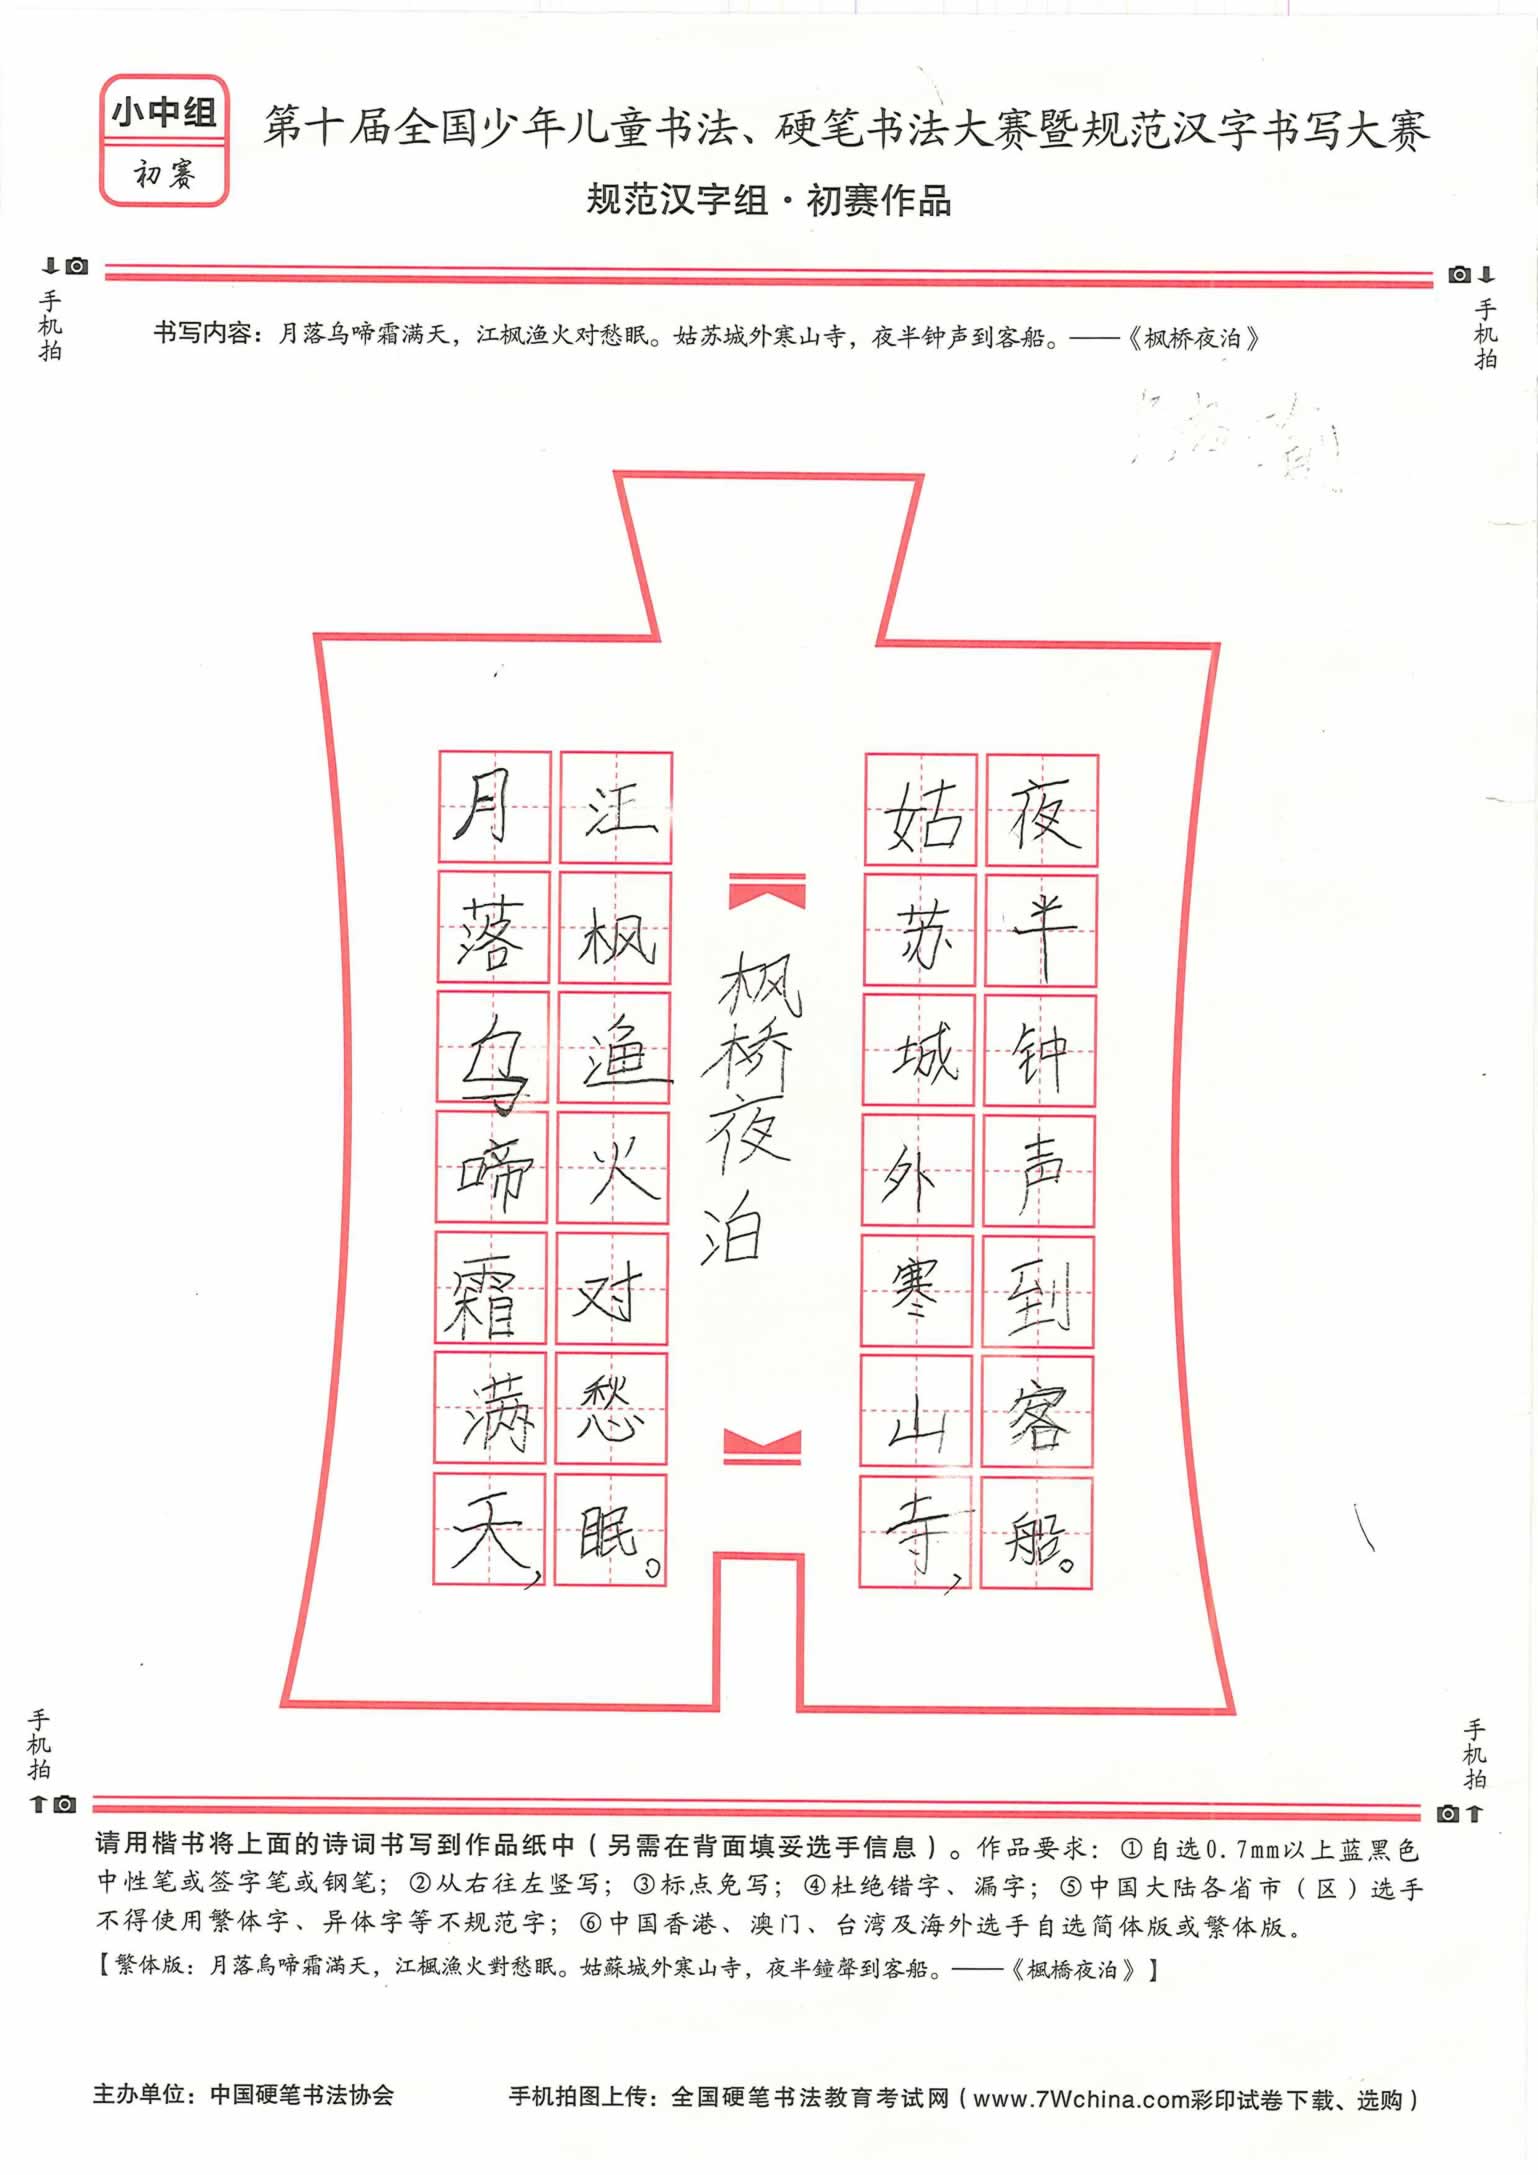 小中组
初赛
第十届全国少年儿童书法、硬笔书法大赛暨规范汉字书写大赛
规范汉字组·初赛作品
手机拍
手机拍
书写内容：月落乌啼霜满天，江枫渔火对愁眠。姑苏城外寒山寺，夜半钟声到客船。——《枫桥夜泊》
月落乌啼霜满天，
江枫渔火对愁眠。
枫桥夜泊
姑苏城外寒山寺，
夜半钟声到客船。
手机拍
手机拍
请用楷书将上面的诗词书写到作品纸中（另需在背面填妥选手信息）。作品要求：①自选0.7mm以上蓝黑色
中性笔或签字笔或钢笔；②从右往左竖写；③标点免写；④杜绝错字、漏字；⑤中国大陆各省市（区）选手
不得使用繁体字、异体字等不规范字；⑥中国香港、澳门、台湾及海外选手自选简体版或繁体版。
【繁体版：月落烏啼霜滿天，江楓漁火對愁眠。姑蘇城外寒山寺，夜半鐘聲到客船。——《楓橋夜泊》】
主办单位：中国硬笔书法协会
手机拍图上传：全国硬笔书法教育考试网（www.7Wchina.com彩印试卷下载、选购）